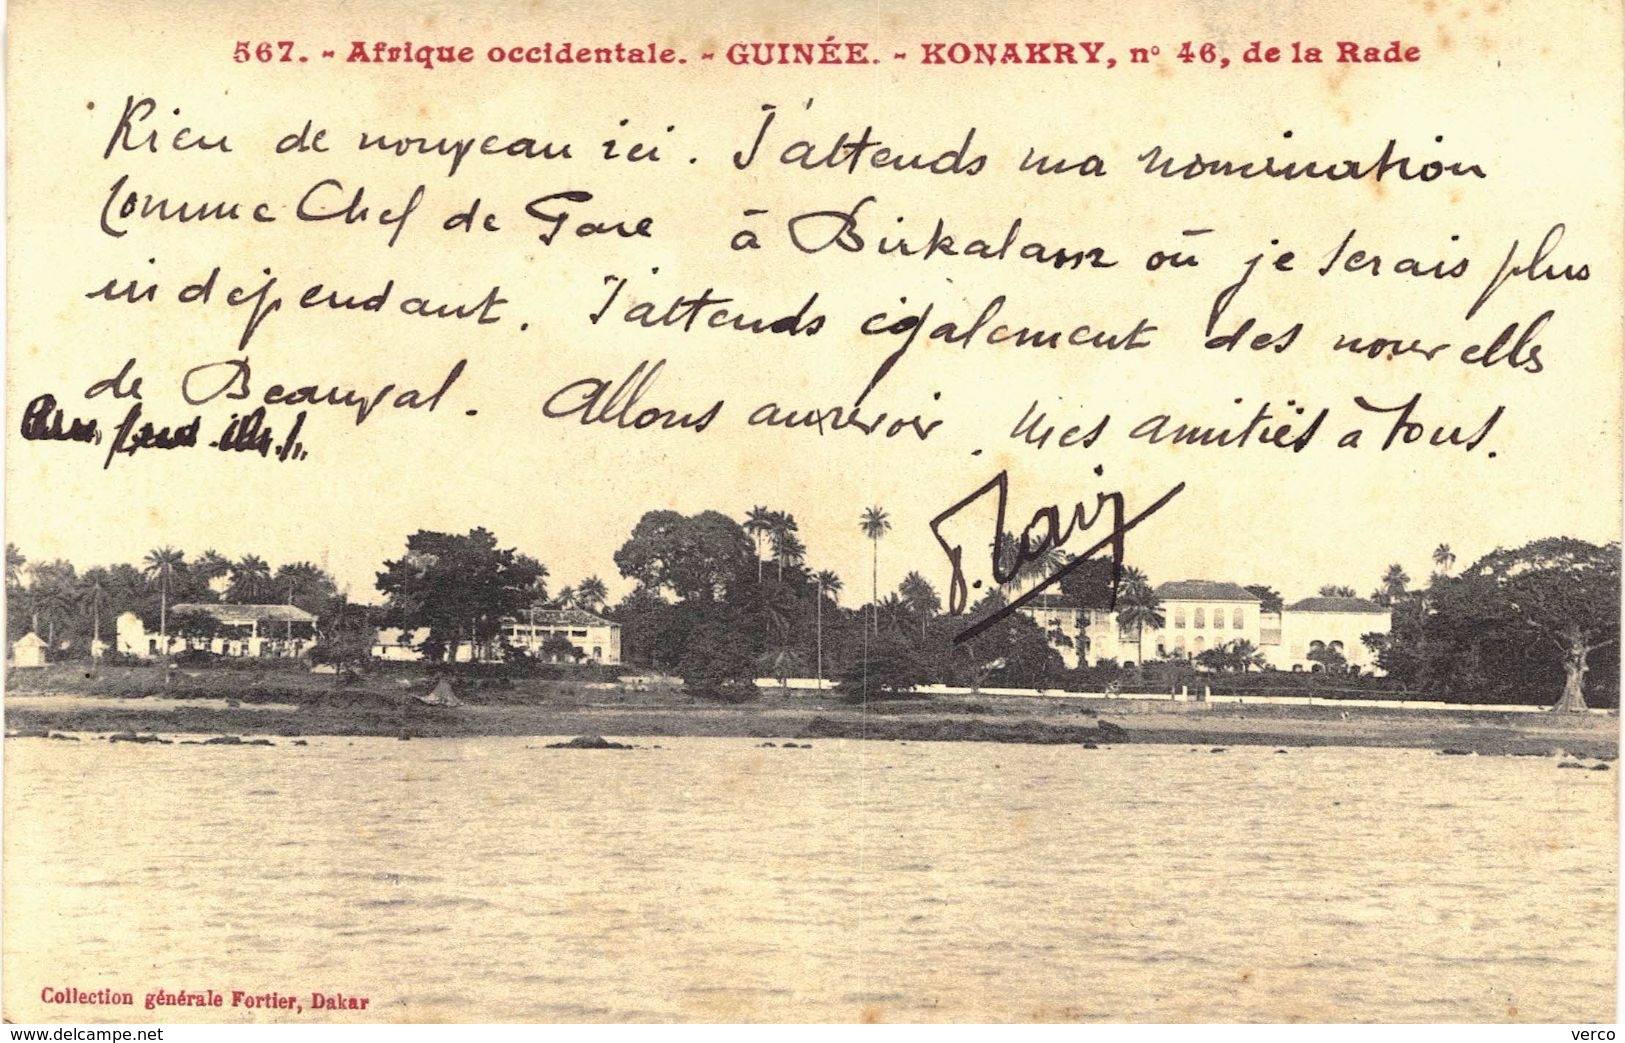 567. - Afrique occidentale. - GUINÉE. - KONAKRY, n° 46, de la Rade
Rien de nouveau ici. J'attends ma nomination
comme Chef de Gare à Birkalam où je serais plus
indépendant. J'attends également des nouvelles
de Beauval. Allons aurevoir. Mes amitiés à tous.
Collection générale Fortier, Dakar
www.delcampe.net
verco